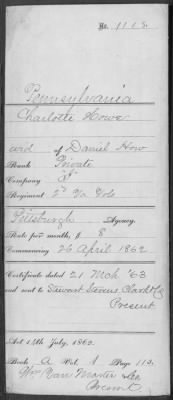 No. 1113.
Pennsylvania
Charlotte Howe
wid of Daniel How
Rank Private
Company "F"
Regiment 2d Va Vols
Pittsburgh Agency.
Rate per month, $ 8
Commencing 26 April 1862
Certificate dated 21 Mch '63
and sent to Stewart Stevens Clark &
Present.
Act 14th July, 1862.
Book A Vol. 1 Page 113.
Present